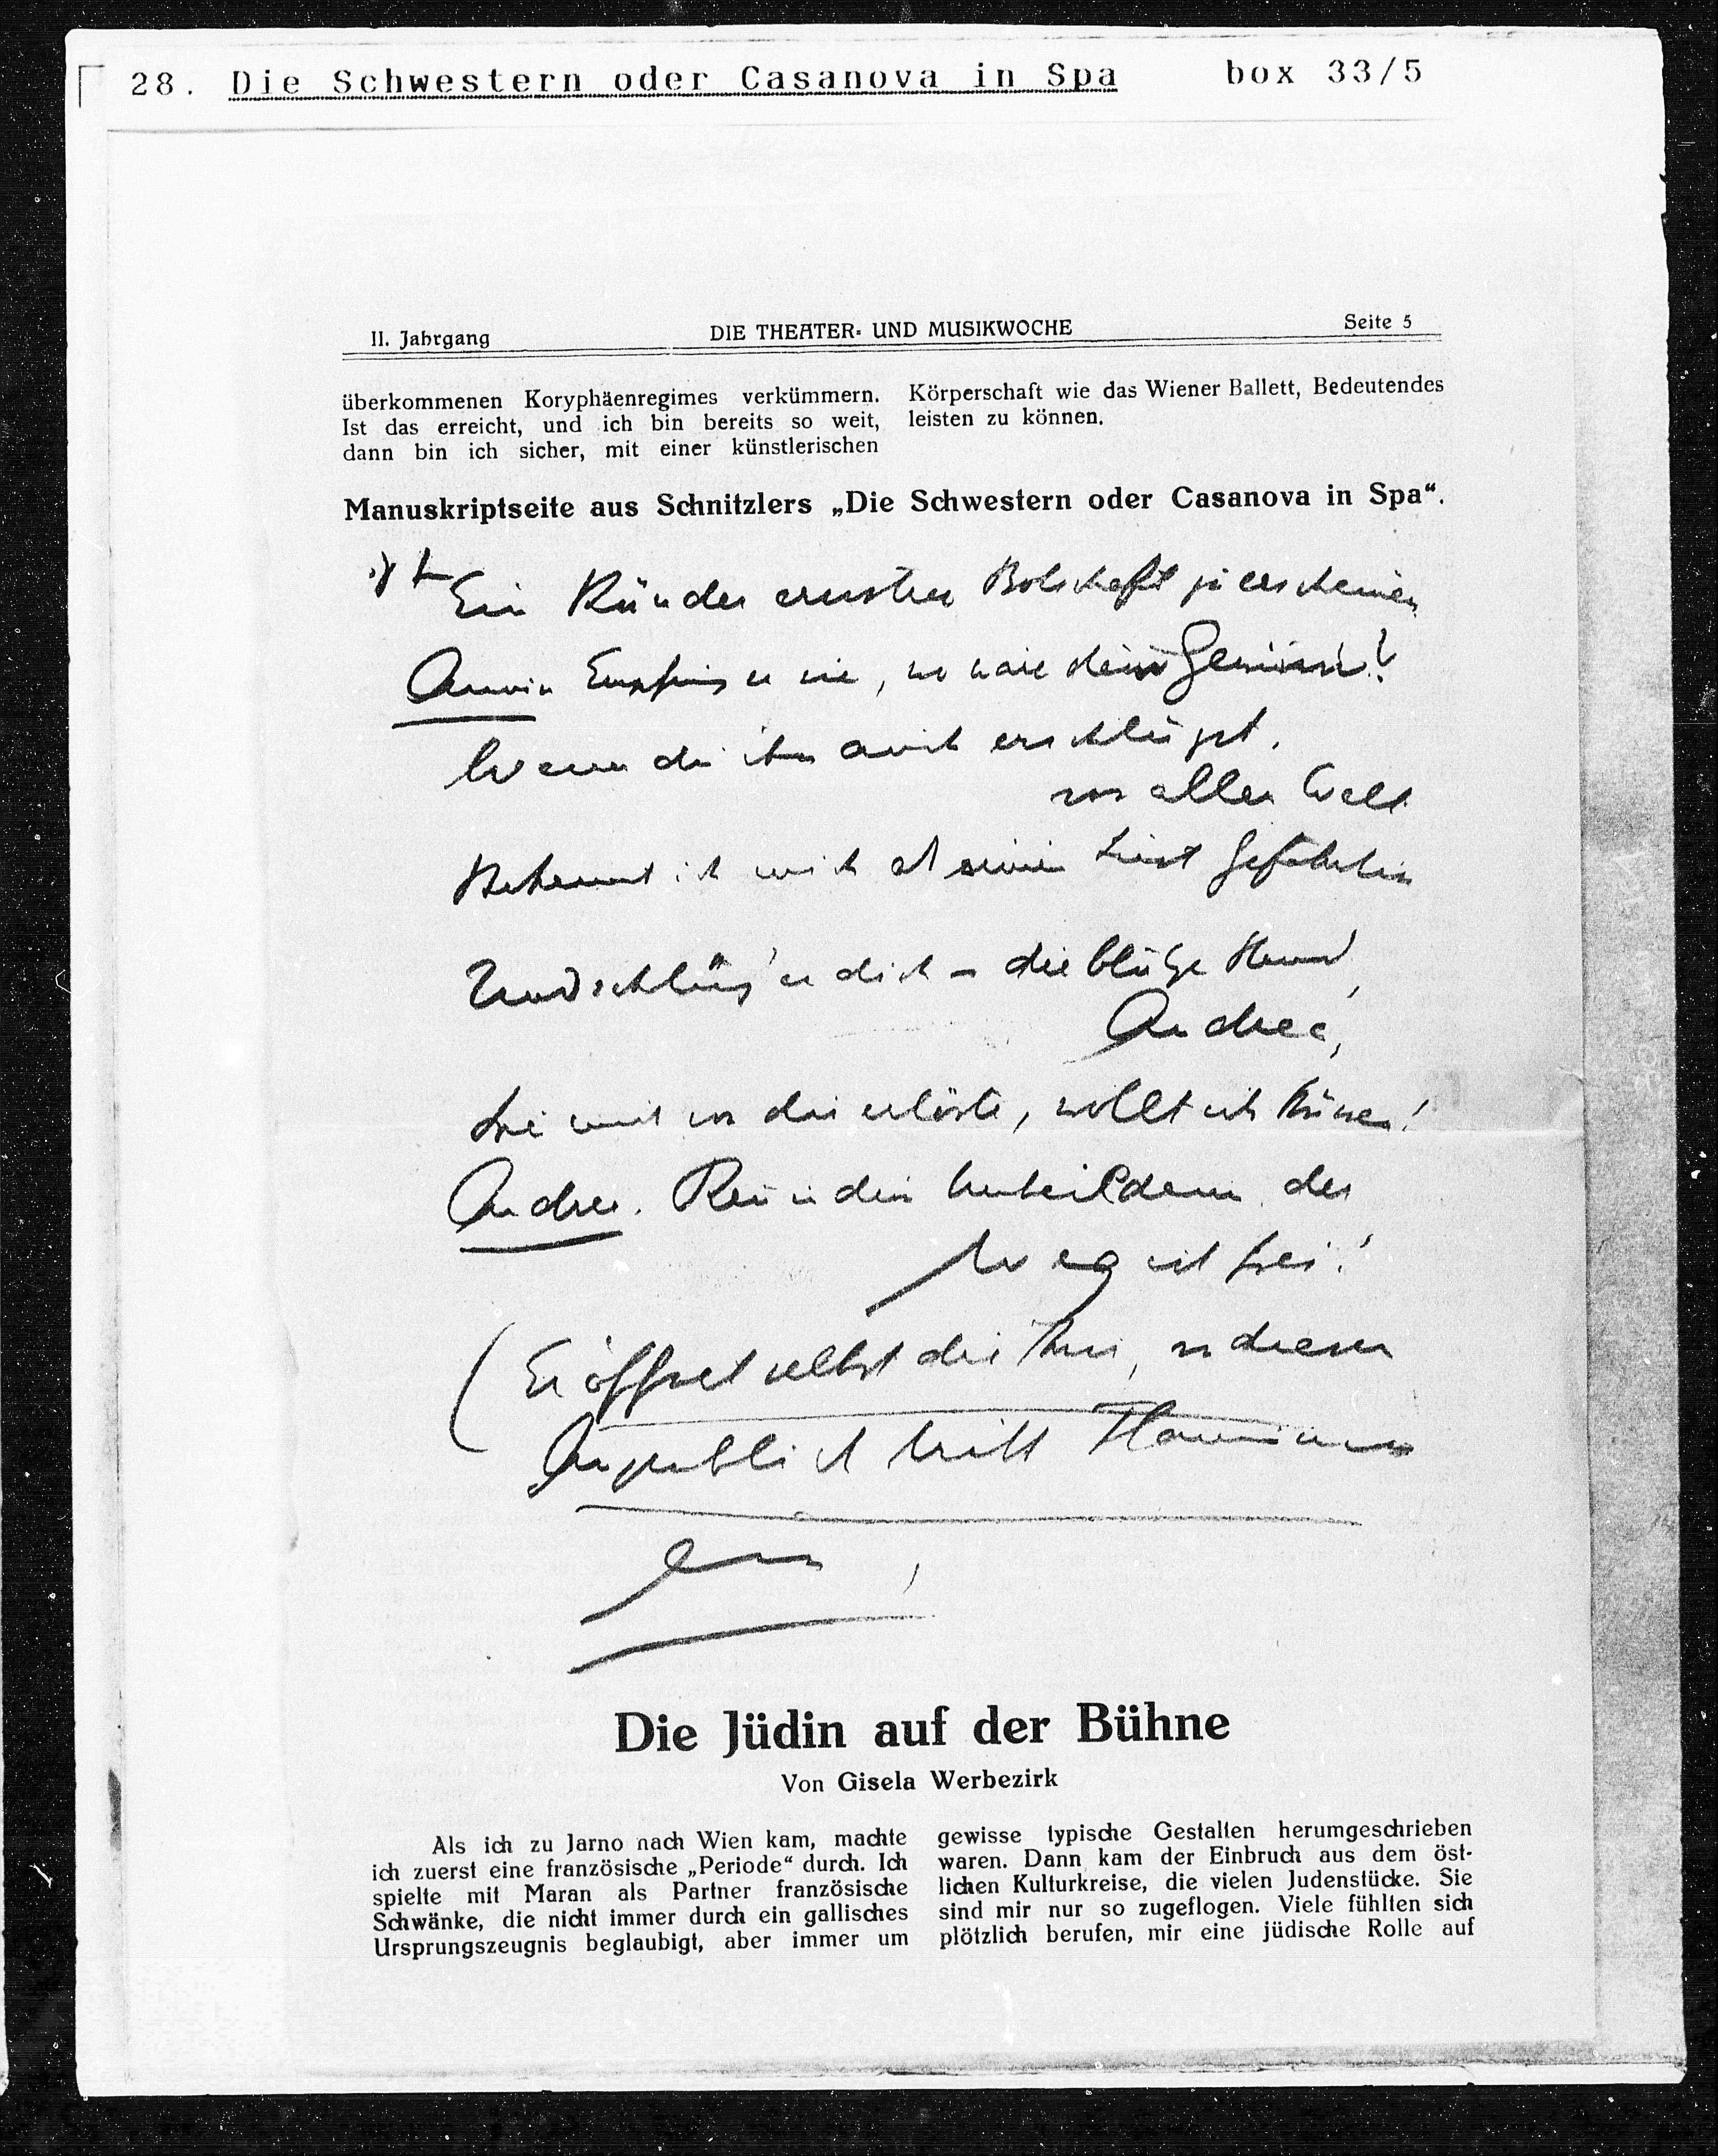 28. Die Schwestern oder Casanova in Spa box 33/5
II. Jahrgang DIE THEATER- UND MUSIKWOCHE Seite 5
überkommenen Koryphäenregimes verkümmern.
Ist das erreicht, und ich bin bereits so weit,
dann bin ich sicher, mit einer künstlerischen
Körperschaft wie das Wiener Ballett, Bedeutendes
leisten zu können.
Manuskriptseite aus Schnitzlers „Die Schwestern oder Casanova in Spa“.
Ein Künder ernster Botschaft zu erscheinen
Anina Empfing er nie, wo wäre dein Gewinn?
Wenn du ihn auch erschlügst,
vor aller Welt
Bekennt ich mich als seine Lustgefährtin
Und schlüg er dich – die blutge Hand,
Andrea,
die mich von dir erlöste, wollt ich küssen!
Andrea. Renn in dein Unheil denn der
Weg ist frei!
(Er öffnet selbst die Thür, in diesem
Augenblick tritt Flaminia
ein,
Die Jüdin auf der Bühne
Von Gisela Werbezirk
Als ich zu Jarno nach Wien kam, machte
ich zuerst eine französische „Periode“ durch. Ich
spielte mit Maran als Partner französische
Schwänke, die nicht immer durch ein gallisches
Ursprungszeugnis beglaubigt, aber immer um
gewisse typische Gestalten herumgeschrieben
waren. Dann kam der Einbruch aus dem öst-
lichen Kulturkreise, die vielen Judenstücke. Sie
sind mir nur so zugeflogen. Viele fühlten sich
plötzlich berufen, mir eine jüdische Rolle auf